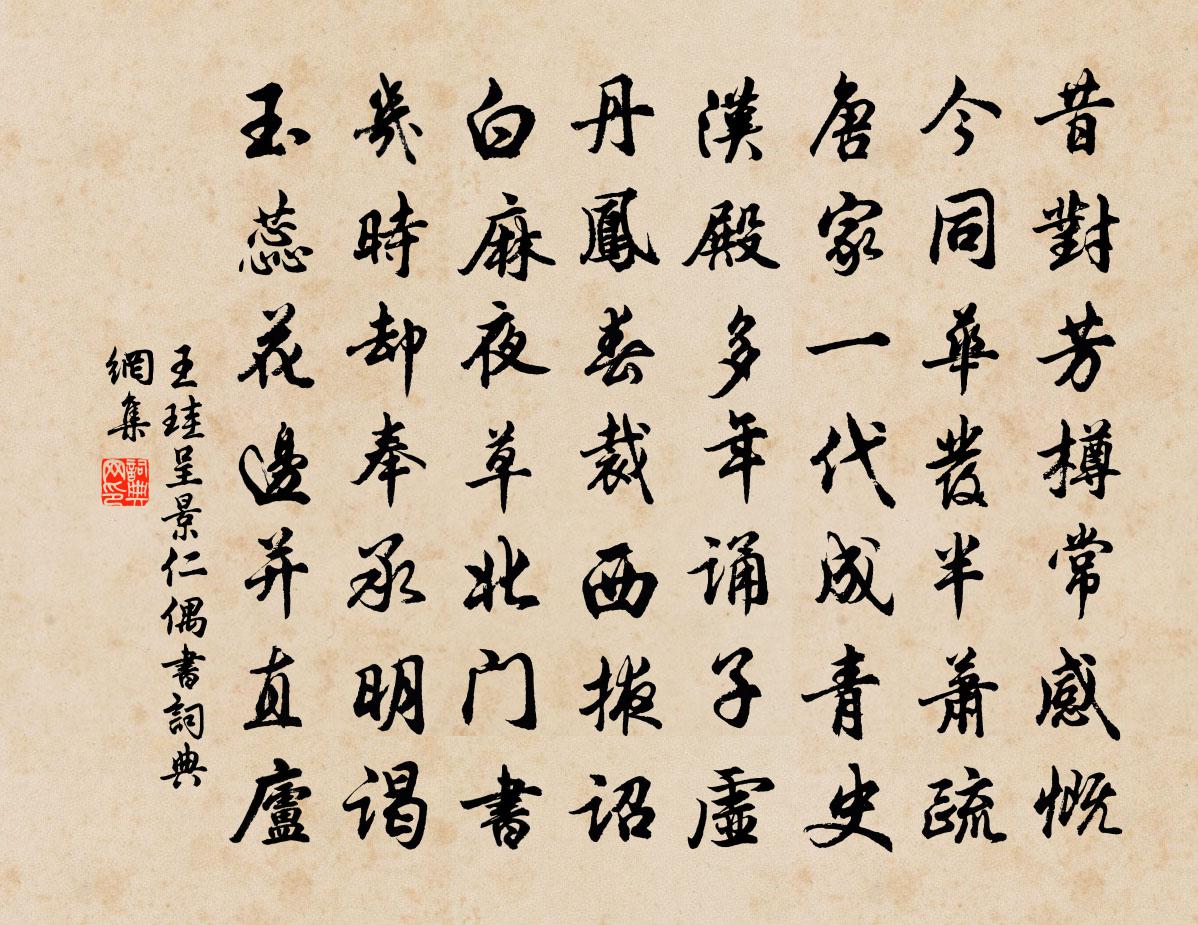 昔對芳樽常感慨
今同華髮半蕭疏
唐家一代成青史
漢殿多年誦子虛
丹鳳春裁西掖詔
白麻夜草北门書
幾時却奉承明謁
玉蕊花邊并直廬
王珪呈景仁偶書詞典
網集
詞典網印